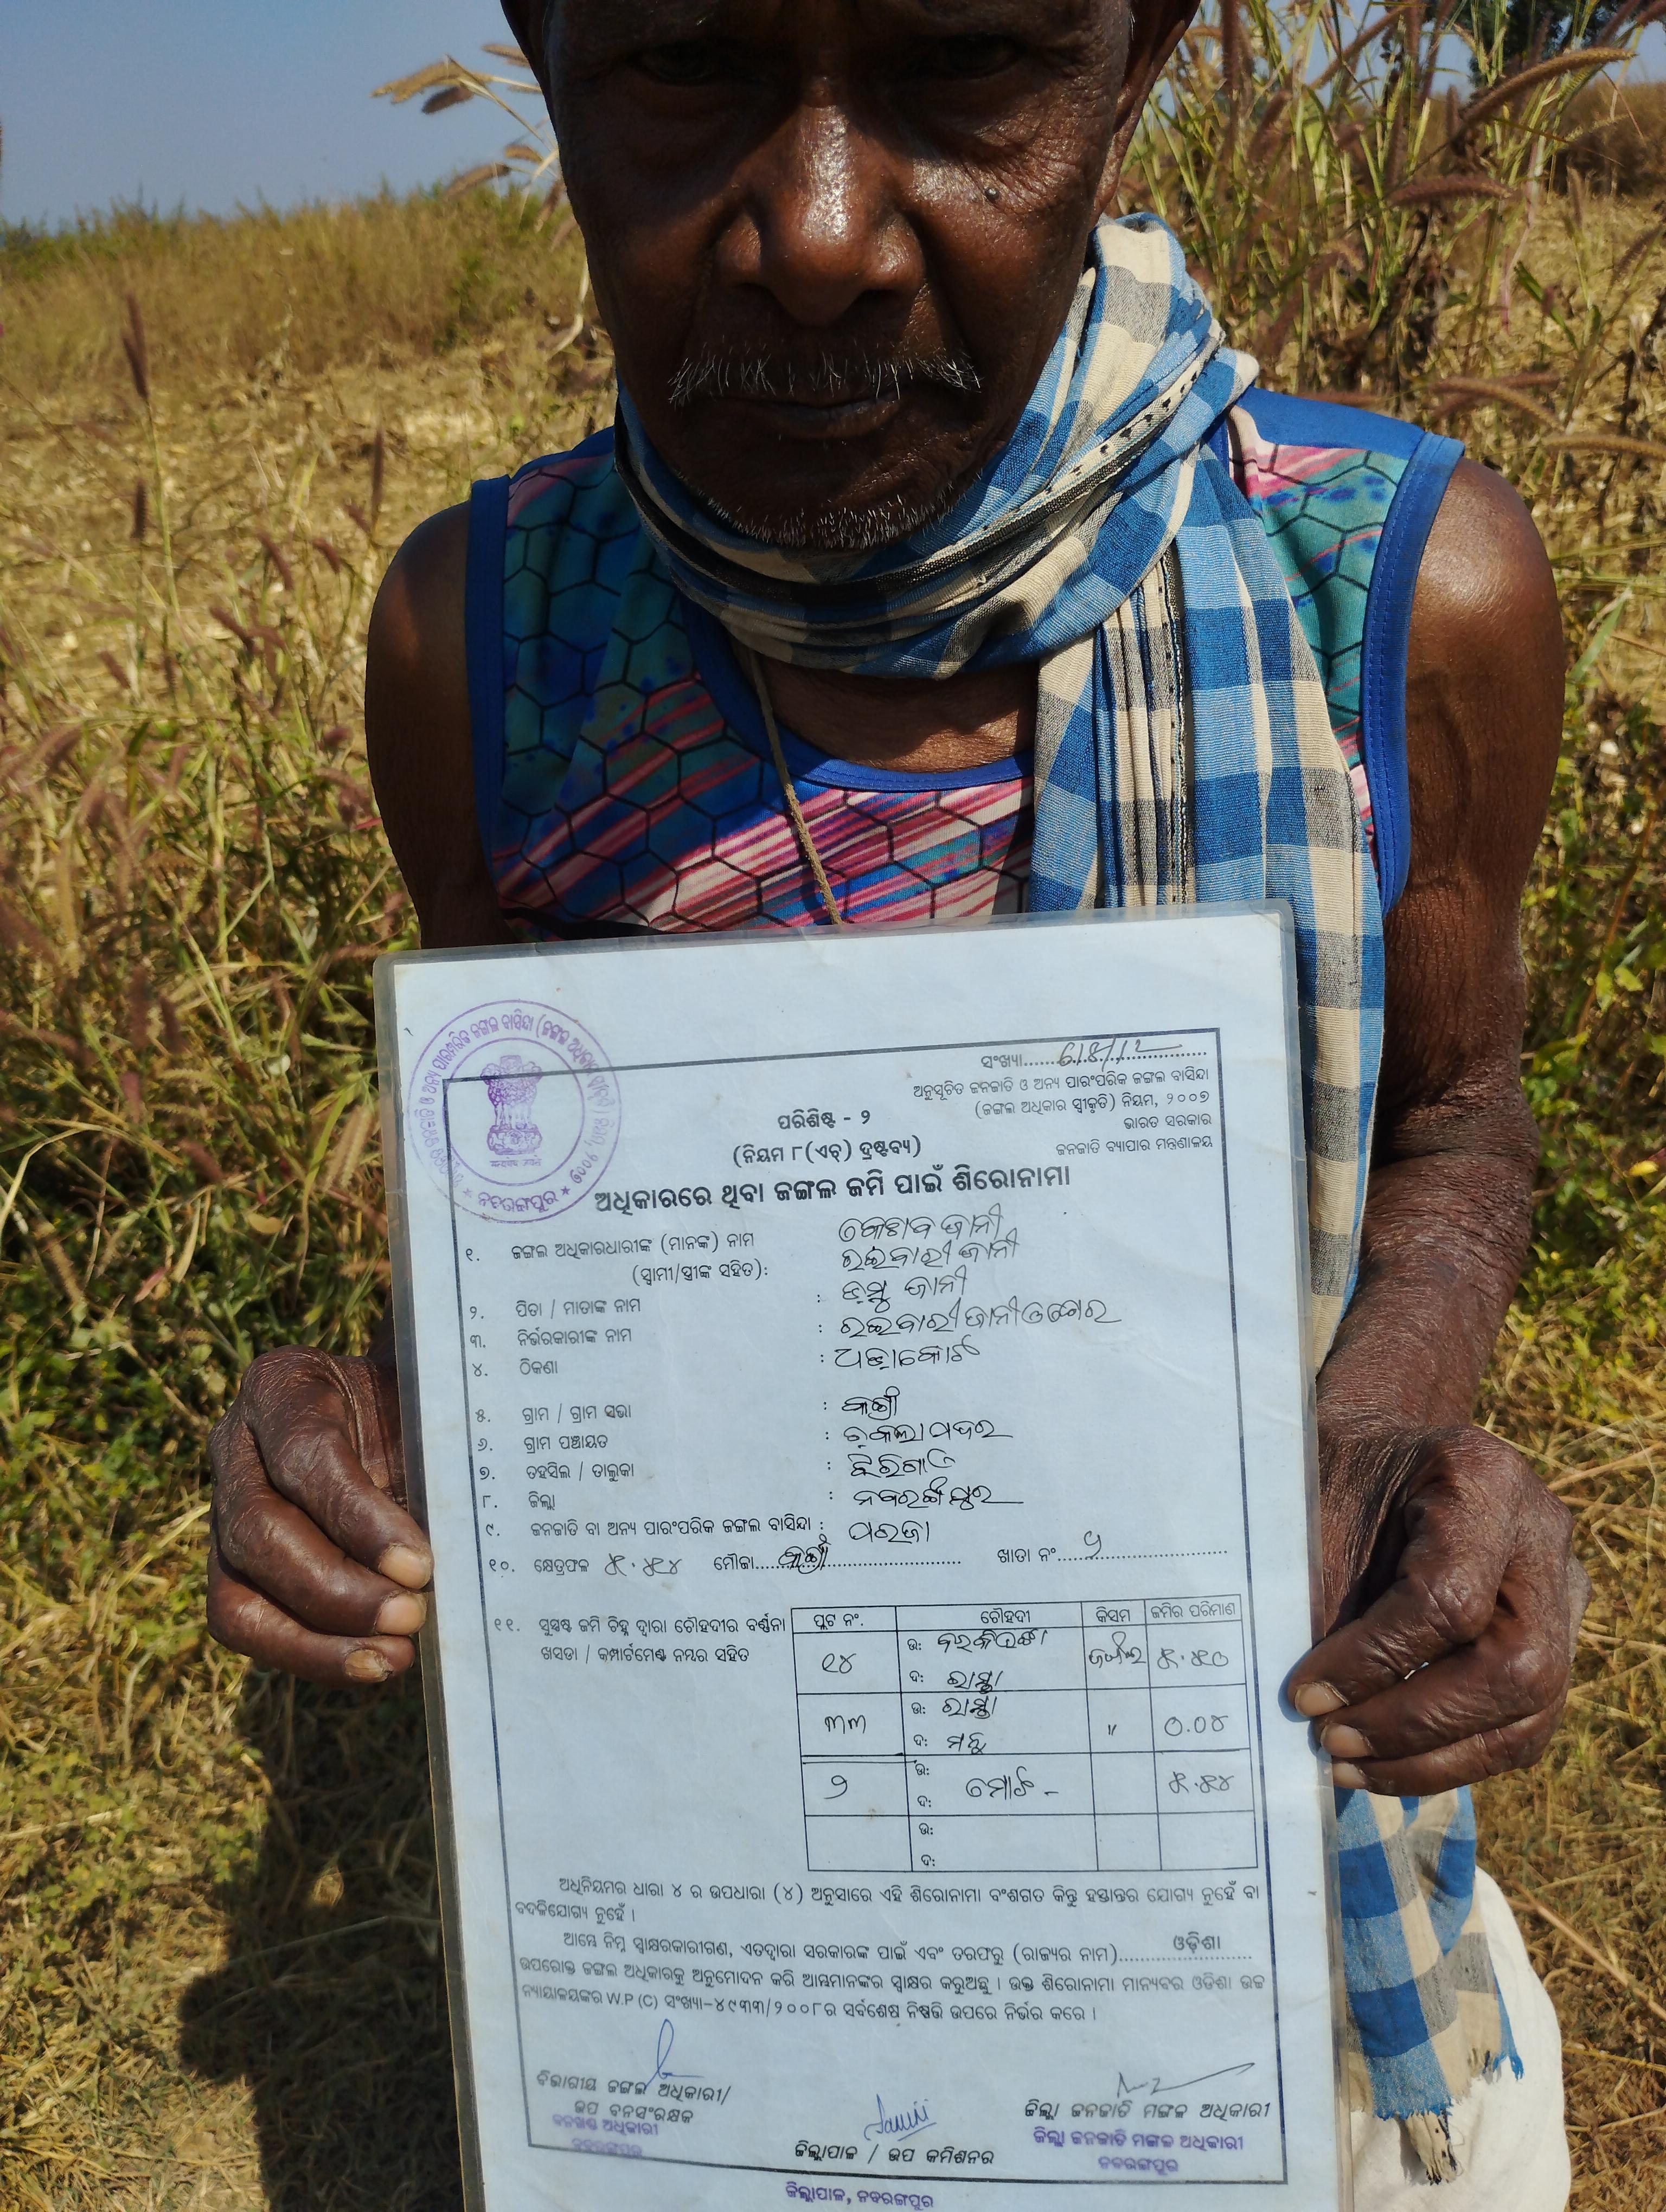 ସଂଖ୍ୟା
ଅନୁସୂଚିତ ଜନଜାତି ଓ ଅନ୍ୟ ପାରଂପରିକ ଜଙ୍ଗଲ ବାସିନ୍ଦା
(ଜଙ୍ଗଲ ଅଧିକାର ସ୍ୱୀକୃତି) ନିୟମ, ୨୦୦୭
ଭାରତ ସରକାର
ଜନଜାତି ବ୍ୟାପାର ମନ୍ତ୍ରଣାଳୟ
ପରିଶିଷ୍ଟ - ୨
(ନିୟମ ୮(ଏଚ୍) ଦ୍ରଷ୍ଟବ୍ୟ)
ଅଧିକାରରେ ଥିବା ଜଙ୍ଗଲ ଜମି ପାଇଁ ଶିରୋନାମା
ନବରଙ୍ଗପୁର
୧. ଜଙ୍ଗଲ ଅଧିକାରଧାରୀଙ୍କ (ମାନଙ୍କ) ନାମ କେଶବ ଜାନୀ
(ସ୍ୱାମୀ/ସ୍ତ୍ରୀଙ୍କ ସହିତ): ରଇବାରୀ ଜାନୀ
୨. ପିତା / ମାତାଙ୍କ ନାମ : ଜାନୀ
୩. ନିର୍ଭରକାରୀଙ୍କ ନାମ : ରଇବାରୀ ଜାନୀ
୪. ଠିକଣା :
୫. ଗ୍ରାମ / ଗ୍ରାମ ସଭା :
୬. ଗ୍ରାମ ପଞ୍ଚାୟତ : ଚକଲାପଦର
୭. ତହସିଲ / ତାଲୁକା : ଝରିଗାଁ
୮. ଜିଲ୍ଲା : ନବରଙ୍ଗପୁର
୯. ଜନଜାତି ବା ଅନ୍ୟ ପାରଂପରିକ ଜଙ୍ଗଲ ବାସିନ୍ଦା : ପରଜା
୧୦. କ୍ଷେତ୍ରଫଳ ୫.୫୪ ମୌଜା ଖାତା ନଂ
୧୧. ସୁସ୍ପଷ୍ଟ ଜମି ଚିହ୍ନ ଦ୍ୱାରା ଚୌହଦୀର ବର୍ଣ୍ଣନା
ଖସଡା / କମ୍ପାର୍ଟମେଣ୍ଟ ନମ୍ବର ସହିତ
ପ୍ଲଟ ନଂ. ଚୌହଦୀ କିସମ ଜମିର ପରିମାଣ
୧୪ ଉ: ଜଙ୍ଗଲ ୫.୫୦
ଦ: ରାସ୍ତା
୩୩ ଉ: ରାସ୍ତା " ୦.୦୪
ଦ:
୨ ଉ: ମୋଟ - ୫.୫୪
ଦ:
ଉ:
ଦ:
ଅଧିନିୟମର ଧାରା ୪ ର ଉପଧାରା (୪) ଅନୁସାରେ ଏହି ଶିରୋନାମା ବଂଶଗତ କିନ୍ତୁ ହସ୍ତାନ୍ତର ଯୋଗ୍ୟ ନୁହେଁ ବା
ବଦଳିଯୋଗ୍ୟ ନୁହେଁ ।
ଆମ୍ଭେ ନିମ୍ନ ସ୍ୱାକ୍ଷରକାରୀଗଣ, ଏତଦ୍ୱାରା ସରକାରଙ୍କ ପାଇଁ ଏବଂ ତରଫରୁ (ରାଜ୍ୟର ନାମ) ଓଡ଼ିଶା
ଉପରୋକ୍ତ ଜଙ୍ଗଲ ଅଧିକାରକୁ ଅନୁମୋଦନ କରି ଆମ୍ଭମାନଙ୍କର ସ୍ୱାକ୍ଷର କରୁଅଛୁ । ଉକ୍ତ ଶିରୋନାମା ମାନ୍ୟବର ଓଡିଶା ଉଚ୍ଚ
ନ୍ୟାୟାଳୟଙ୍କର W.P (C) ସଂଖ୍ୟା-୪୯୩୩/୨୦୦୮ର ସର୍ବଶେଷ ନିଷ୍ପତ୍ତି ଉପରେ ନିର୍ଭର କରେ ।
ବିଭାଗୀୟ ଜଙ୍ଗଲ ଅଧିକାରୀ/
ଉପ ବନସଂରକ୍ଷକ
ବନଖଣ୍ଡ ଅଧିକାରୀ
ନବରଙ୍ଗପୁର
ଜିଲ୍ଲାପାଳ / ଉପ କମିଶନର
ଜିଲ୍ଲାପାଳ, ନବରଙ୍ଗପୁର
ଜିଲ୍ଲା ଜନଜାତି ମଙ୍ଗଳ ଅଧିକାରୀ
ଜିଲ୍ଲା ଜନଜାତି ମଙ୍ଗଳ ଅଧିକାରୀ
ନବରଙ୍ଗପୁର